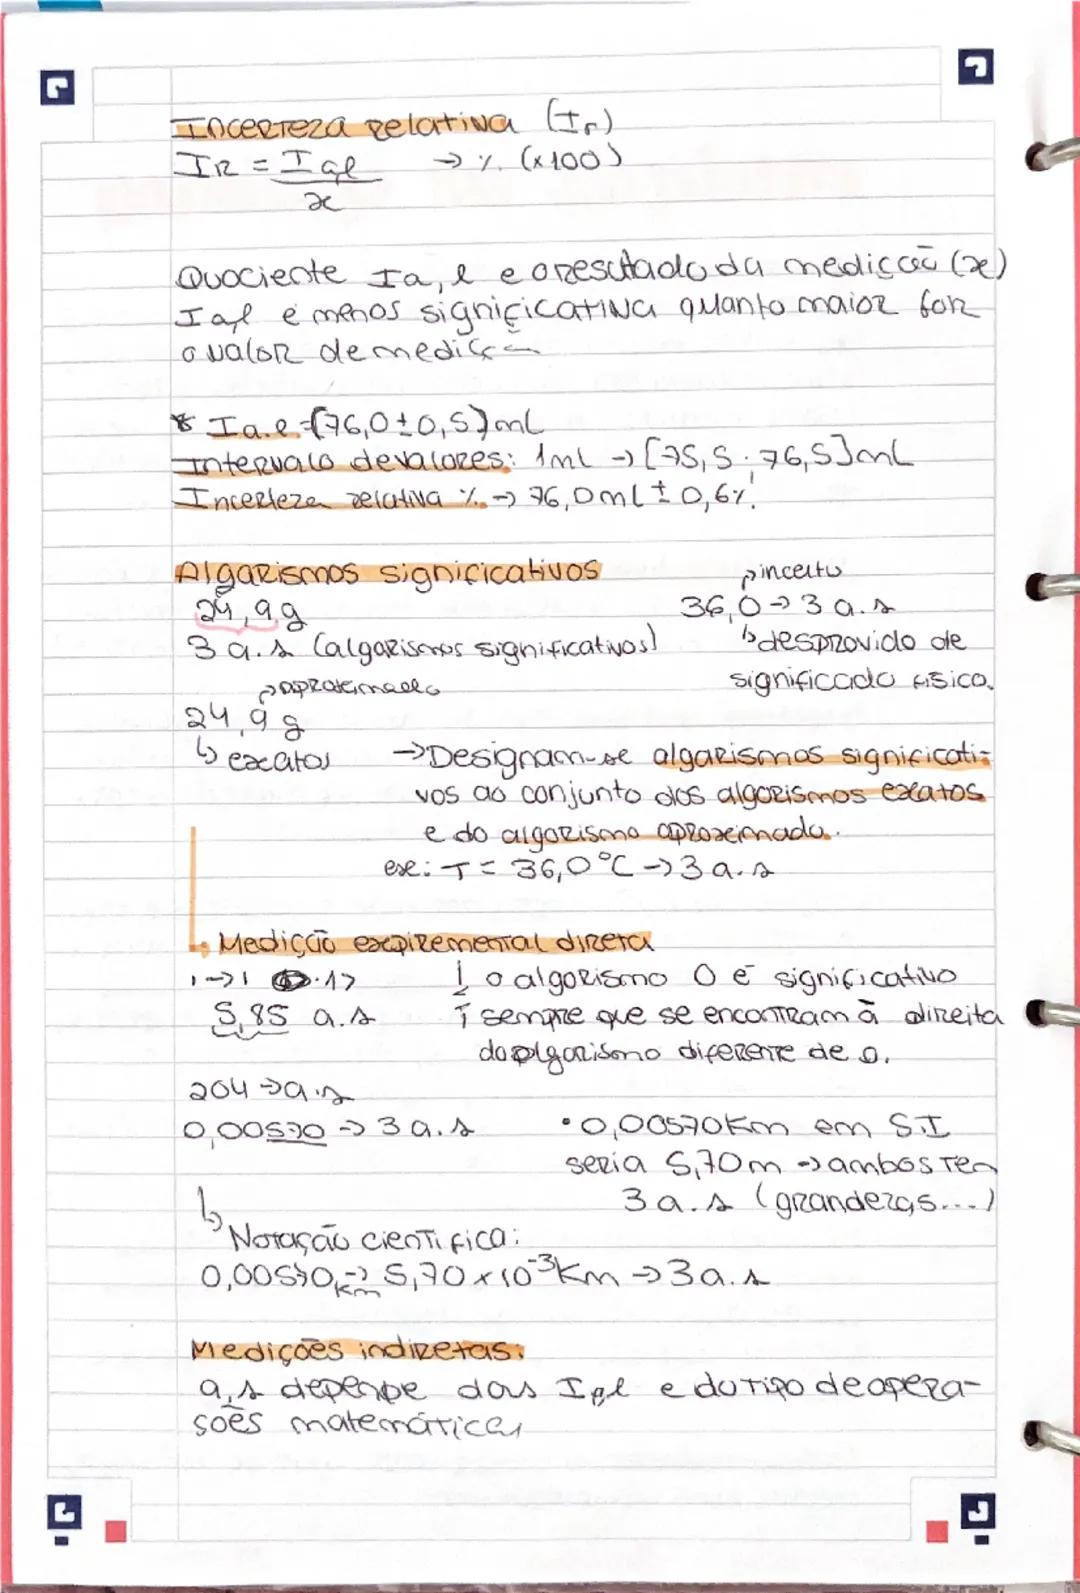 Incerteza relativa (Ir)
IR = Ia,l → % (×100)
x
Quociente Ia,l e o resultado da medição (x)
Ia,l é menos significativa quanto maior for
o valor de medição
* Ia.l = (76,0 ± 0,5) mL
Intervalo de valores: 1mL → [75,5 ; 76,5] mL
Incerteza relativa % → 76,0 mL ± 0,6%
Algarismos significativos
24,9 g
3 a.s (algarismos significativos)
→ incerto
36,0 → 3 a.s
↳ desprovido de
significado físico.
→ aproximado
24,9 g
↳ exatos
→ Designam-se algarismos significati-
vos ao conjunto dos algarismos exatos
e do algarismo aproximado.
ex: T = 36,0 °C → 3 a.s
↳ Medição expiremental direta
5,85 a.s
! o algarismo 0 é significativo
sempre que se encontram à direita
do algarismo diferente de 0.
204 → a.s
0,00570 → 3 a.s
• 0,00570 Km em S.I
seria 5,70 m → ambos tem
3 a.s (grandezas...)
↳ Notação cientifica:
0,00570 km → 5,70 × 10⁻³ Km → 3 a.s
Medições indiretas:
a,s depende das Ia,l e do tipo de opera-
sões matemáticas